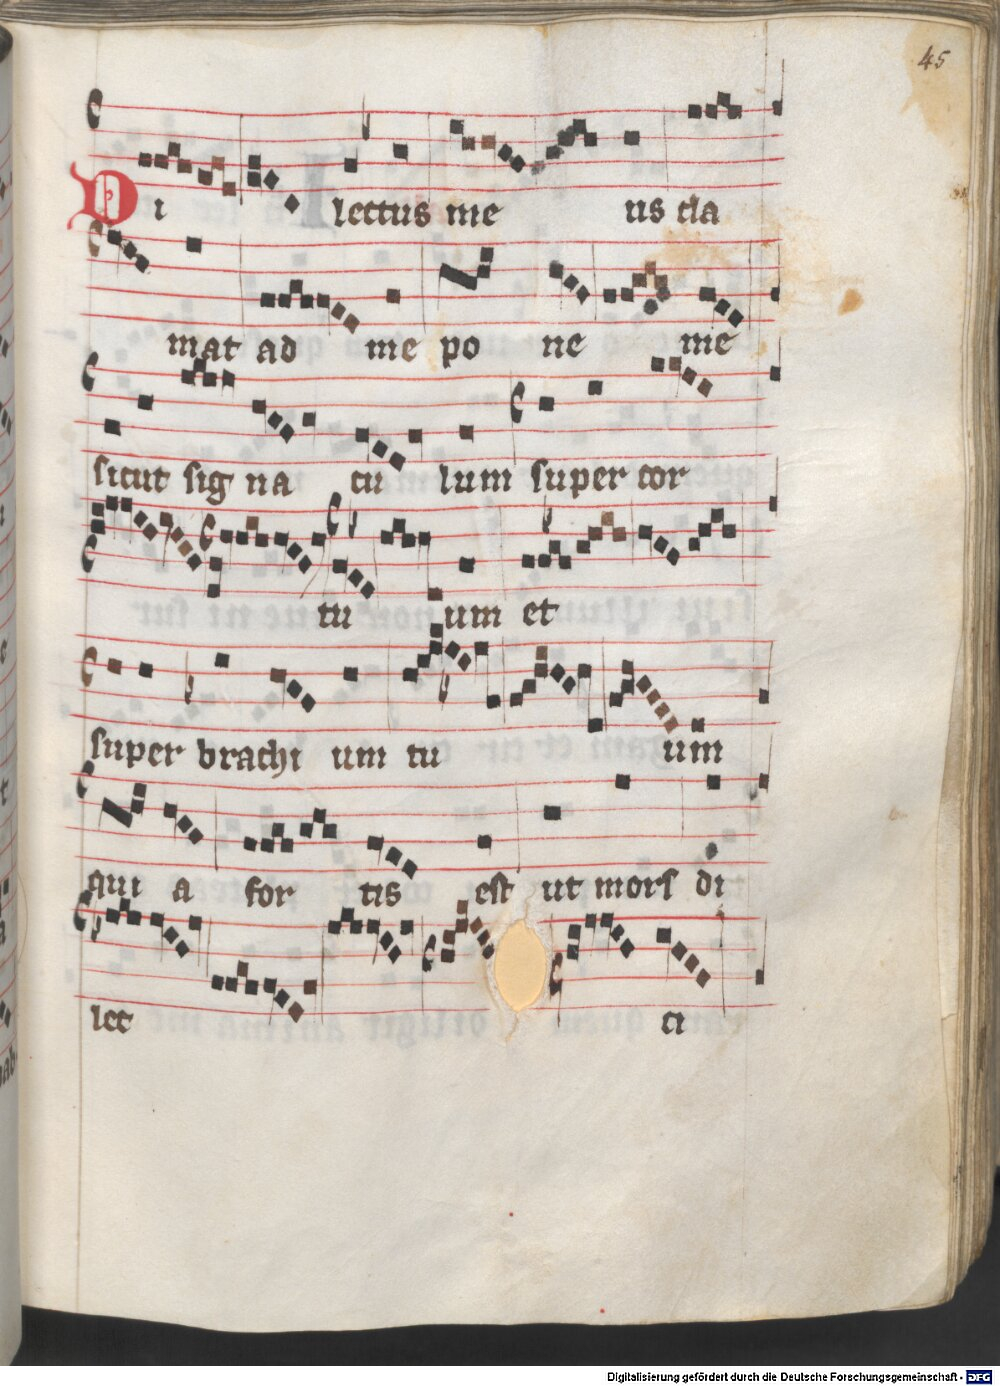 45
Di lectus me us cla
mat ad me po ne me
sicut sig na cu lum super cor
tu um et
super brachi um tu um
qui a for tis est ut mors di
lec ci
Digitalisierung gefördert durch die Deutsche Forschungsgemeinschaft - DFG